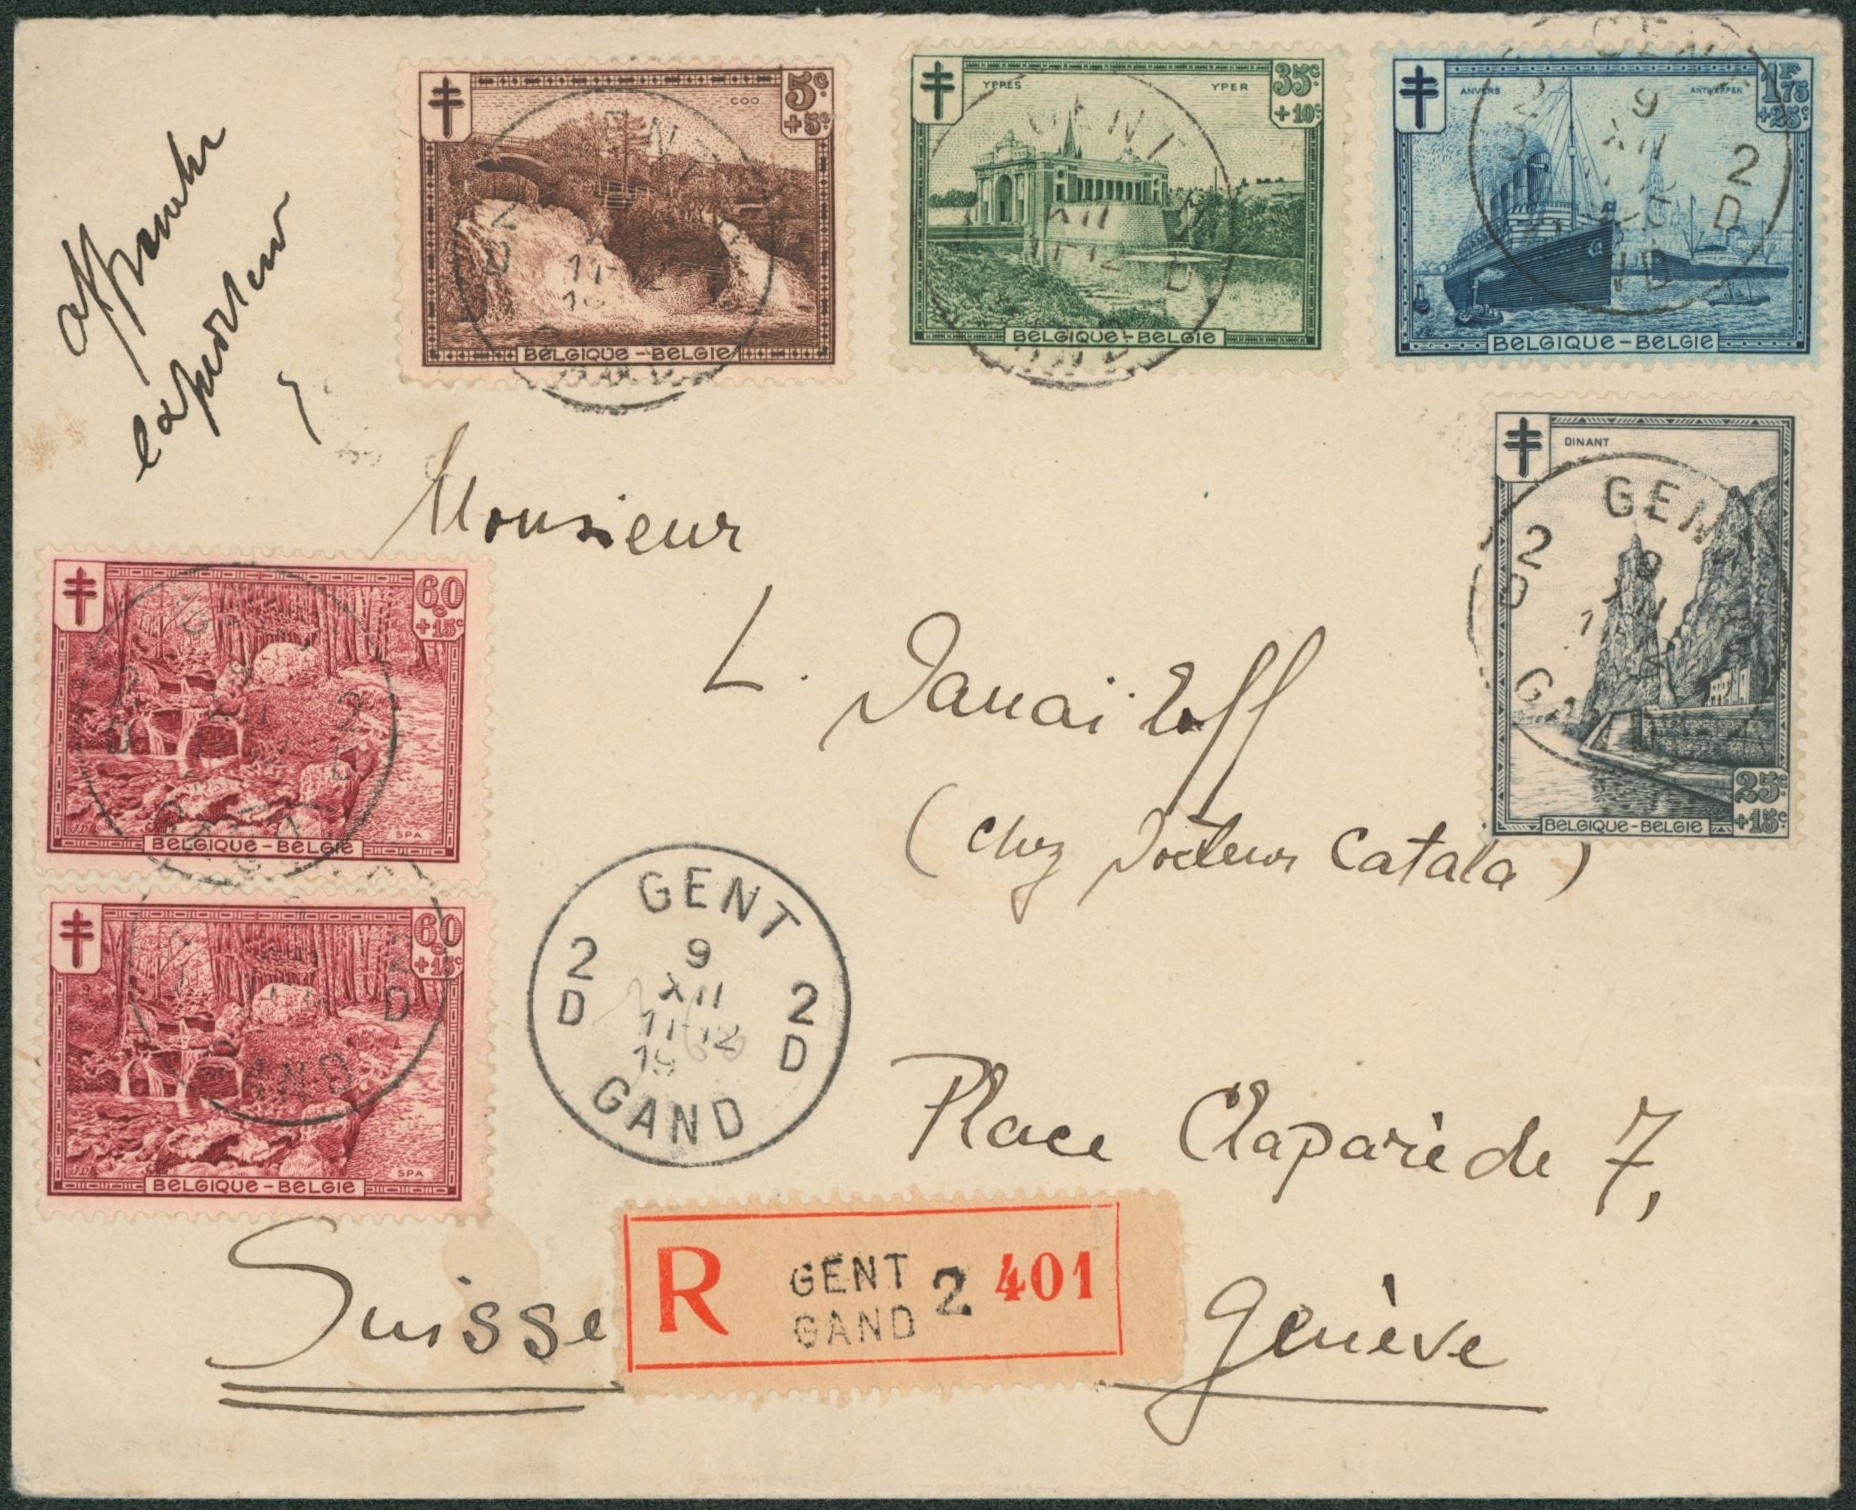 COO
5c
+5c
BELGIQUE-BELGIE
YPRES YPER
35c
+10c
BELGIQUE-BELGIE
ANVERS ANTWERPEN
1F75
+25c
BELGIQUE-BELGIE
DINANT
25c
+15c
BELGIQUE-BELGIE
60c
+15c
SPA
BELGIQUE-BELGIE
60c
+15c
SPA
BELGIQUE-BELGIE
Monsieur
L. Danaïloff
(chez Docteur Catala)
Place Claparède 7,
Genève
Suisse
GENT
9
XII
11-12
19
2 D
2 D
GAND
GENT
2 D
9
XII
R GENT GAND 2 401